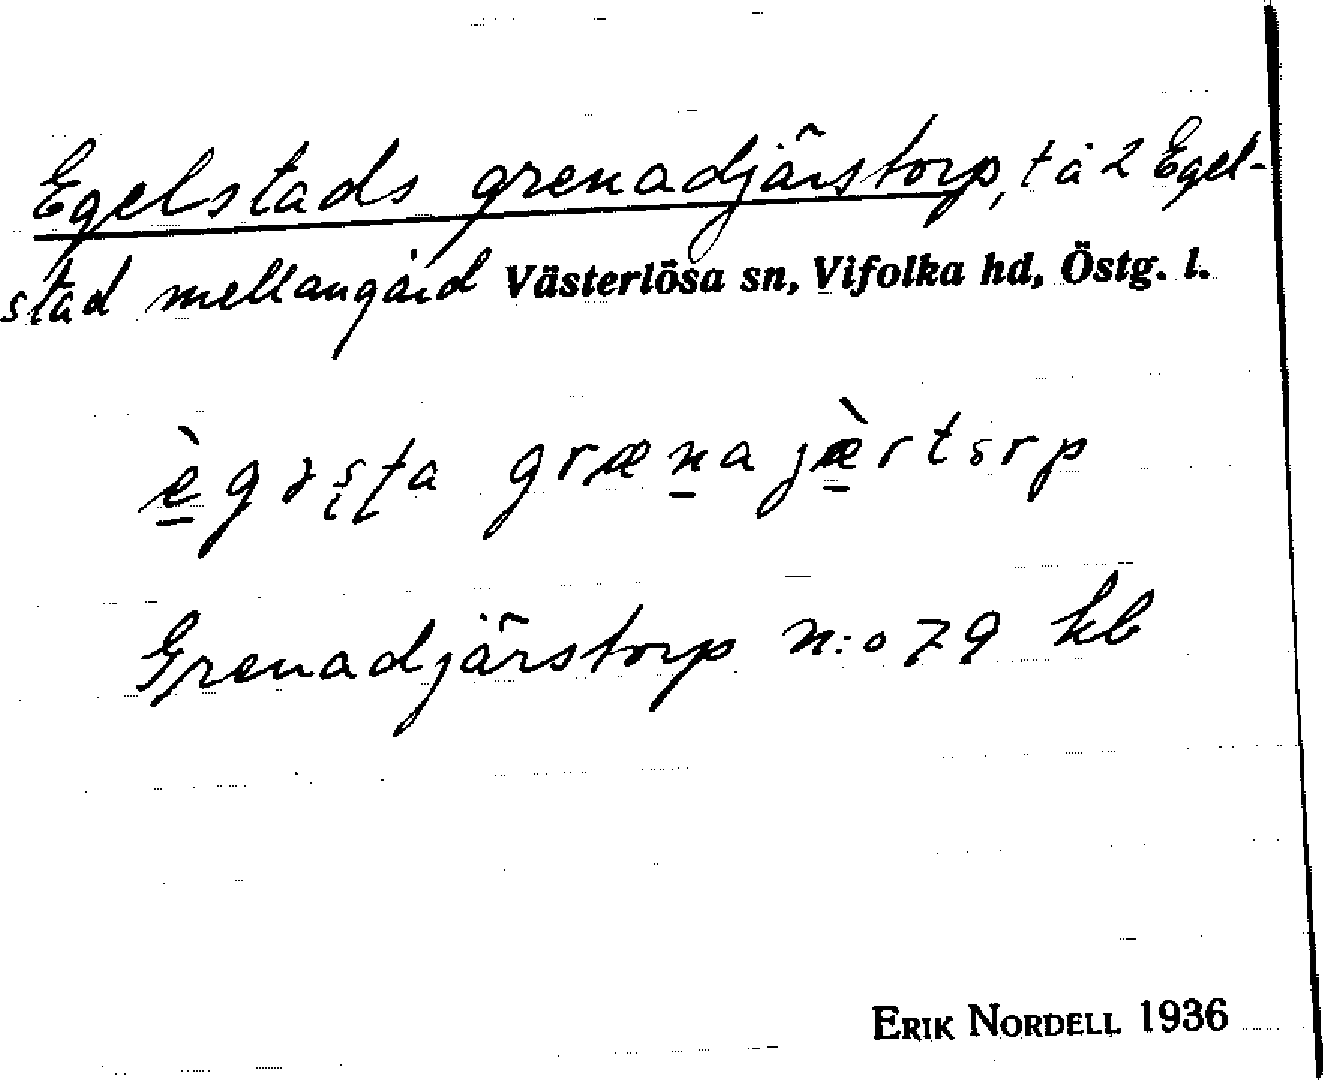 Egelstads grenadjärstorp, t å 2 Egel-
stad mellangård Västerlösa sn, Vifolka hd, Östg. l.
grænajæ̀rtorp
Grenadjärstorp n:o 79 kb
ERIK NORDELL 1936